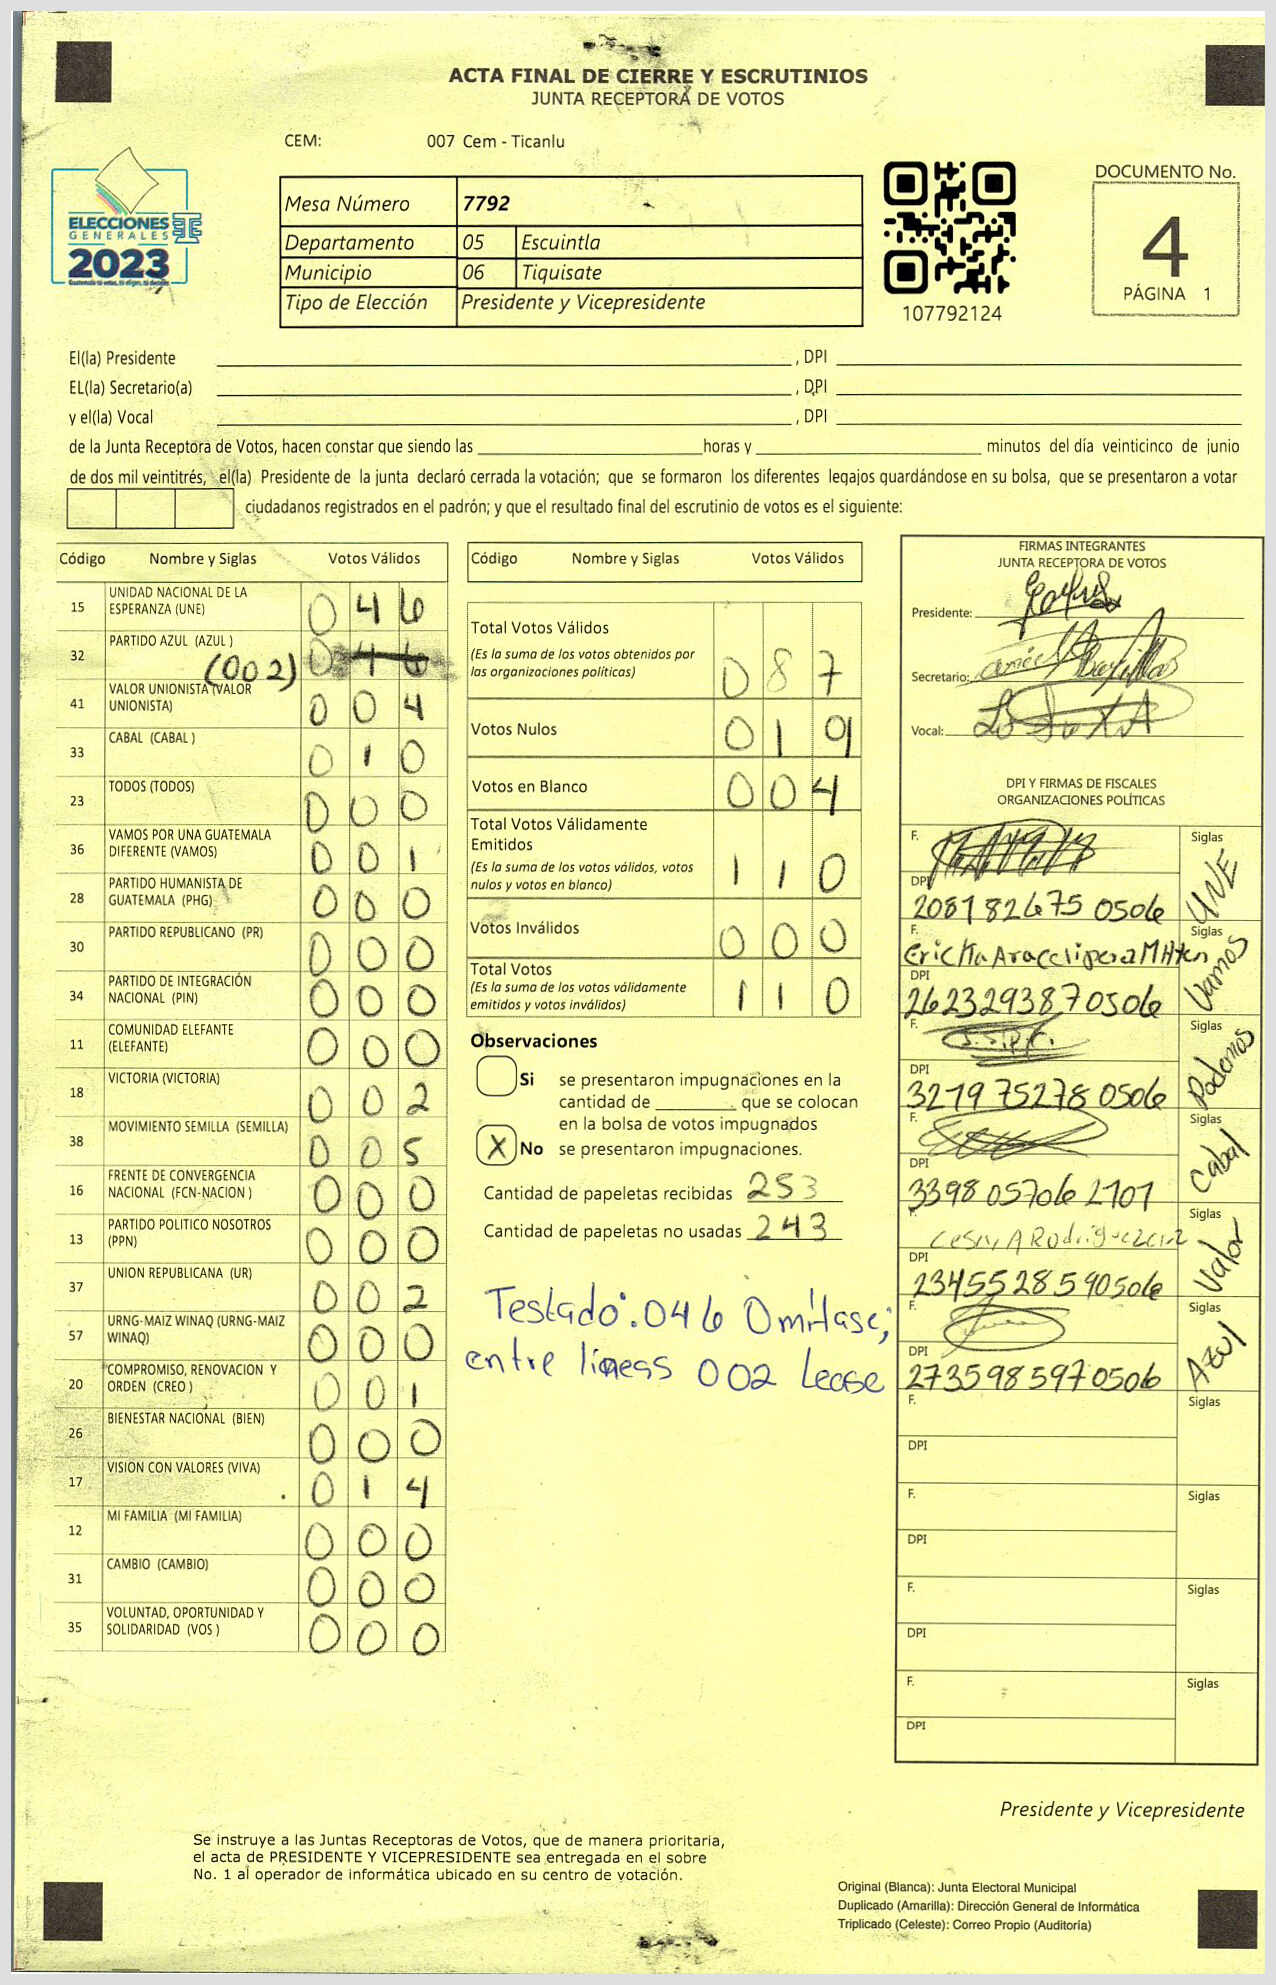 ACTA FINAL DE CIERRE Y ESCRUTINIOS
JUNTA RECEPTORA DE VOTOS
CEM: 007 Cem - Ticanlu
ELECCIONES
GENERALES
2023
Mesa Número 7792
Departamento 05 Escuintla
Municipio 06 Tiquisate
Tipo de Elección Presidente y Vicepresidente
107792124
DOCUMENTO No.
4
PÁGINA 1
El(la) Presidente , DPI
EL(la) Secretario(a) , DPI
y el(la) Vocal , DPI
de la Junta Receptora de Votos, hacen constar que siendo las horas y minutos del día veinticinco de junio
de dos mil veintitrés, el(la) Presidente de la junta declaró cerrada la votación; que se formaron los diferentes legajos quardándose en su bolsa, que se presentaron a votar
ciudadanos registrados en el padrón; y que el resultado final del escrutinio de votos es el siguiente:
Código Nombre y Siglas Votos Válidos
15 UNIDAD NACIONAL DE LA ESPERANZA (UNE) 046
32 PARTIDO AZUL (AZUL ) (002) 046
41 VALOR UNIONISTA (VALOR UNIONISTA) 004
33 CABAL (CABAL ) 010
23 TODOS (TODOS) 000
36 VAMOS POR UNA GUATEMALA DIFERENTE (VAMOS) 001
28 PARTIDO HUMANISTA DE GUATEMALA (PHG) 000
30 PARTIDO REPUBLICANO (PR) 000
34 PARTIDO DE INTEGRACIÓN NACIONAL (PIN) 000
11 COMUNIDAD ELEFANTE (ELEFANTE) 000
18 VICTORIA (VICTORIA) 002
38 MOVIMIENTO SEMILLA (SEMILLA) 005
16 FRENTE DE CONVERGENCIA NACIONAL (FCN-NACION ) 000
13 PARTIDO POLITICO NOSOTROS (PPN) 000
37 UNION REPUBLICANA (UR) 002
57 URNG-MAIZ WINAQ (URNG-MAIZ WINAQ) 000
20 COMPROMISO, RENOVACION Y ORDEN (CREO ) 001
26 BIENESTAR NACIONAL (BIEN) 000
17 VISION CON VALORES (VIVA) 014
12 MI FAMILIA (MI FAMILIA) 000
31 CAMBIO (CAMBIO) 000
35 VOLUNTAD, OPORTUNIDAD Y SOLIDARIDAD (VOS ) 000
Código Nombre y Siglas Votos Válidos
Total Votos Válidos 087
(Es la suma de los votos obtenidos por
las organizaciones políticas)
Votos Nulos 019
Votos en Blanco 004
Total Votos Válidamente
Emitidos 110
(Es la suma de los votos válidos, votos
nulos y votos en blanco)
Votos Inválidos 000
Total Votos 110
(Es la suma de los votos válidamente
emitidos y votos inválidos)
Observaciones
Si se presentaron impugnaciones en la
cantidad de . que se colocan
en la bolsa de votos impugnados
X No se presentaron impugnaciones.
Cantidad de papeletas recibidas 253
Cantidad de papeletas no usadas 243
Testado: 046 Omitase;
entre lineas 002 Lease
FIRMAS INTEGRANTES
JUNTA RECEPTORA DE VOTOS
Presidente:
Secretario:
Vocal:
DPI Y FIRMAS DE FISCALES
ORGANIZACIONES POLÍTICAS
F. Siglas UNE
DPI 2081 82675 0506
F. Siglas Vamos
DPI 2623293870506
F. Siglas Podemos
DPI 3219 75278 0506
F. Siglas Cabal
DPI 3398 05706 2101
F. Siglas Valor
DPI 2345528590506
F. Siglas Azul
DPI 2735985970506
F. Siglas
DPI
F. Siglas
DPI
F. Siglas
DPI
F. Siglas
DPI
Presidente y Vicepresidente
Se instruye a las Juntas Receptoras de Votos, que de manera prioritaria,
el acta de PRESIDENTE Y VICEPRESIDENTE sea entregada en el sobre
No. 1 al operador de informática ubicado en su centro de votación.
Original (Blanca): Junta Electoral Municipal
Duplicado (Amarilla): Dirección General de Informática
Triplicado (Celeste): Correo Propio (Auditoría)